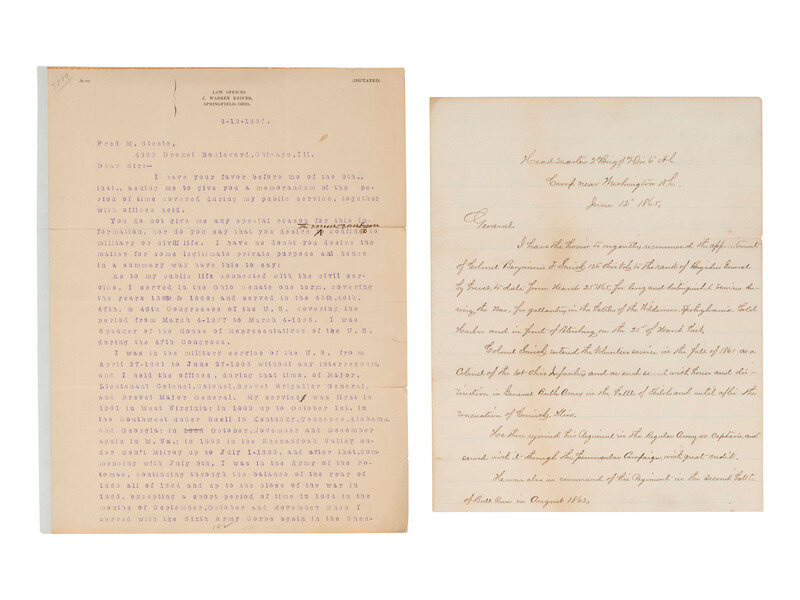 2519
LAW OFFICES
J. WARREN KEIFER,
SPRINGFIELD, OHIO.
(DICTATED)
8-12-1887.
Fred M. Steele,
4022 Drexel Boulevard, Chicago, Ill.
Dear Sir:-
I have your favor before me of the 9th.,
inst., asking me to give you a memorandum of the pe-
riod of time covered during my public service, together
with offices held.
You do not give me any special reason for this in-
formation, nor do you say that you desire to confine to
military or civil life. I have no doubt you desire the
matter for some legitimate private purpose and hence
in a summary way have this to say:
As to my public life connected with the civil ser-
vice, I served in the Ohio senate one term, covering
the years 1868 & 1869; and served in the 45th, 46th,
47th, & 48th Congresses of the U.S. covering the
period from March 4-1877 to March 4-1885. I was
Speaker of the House of Representatives of the U.S.
during the 47th Congress.
I was in the military service of the U.S. from
April 27-1861 to June 27-1865 without any interregnum,
and I held the offices, during that time, of Major,
Lieutenant Colonel, Colonel, Brevet Brigadier General,
and Brevet Major General. My service was first in
1861 in West Virginia; in 1862 up to October 1st. in
the Southwest under Buell in Kentucky, Tennessee, Alabama
and Georgia; in October, November and December
again in W. Va.; in 1863 in the Shenandoah Valley un-
der Gen'l Milroy up to July 1-1863, and after that, com-
mencing with July 9th, I was in the Army of the Po-
tomac, continuing through the balance of the year of
1863 all of 1864 and up to the close of the war in
1865, excepting a short period of time in 1864 in the
months of September, October and November when I
served with the Sixth Army Corps again in the Shen-
Head Quarters 2 Brig 3 Div 6 A.C.
Camp near Washington D.C.
June 12 1865,
General.
I have the honor to urgently recommend the appointment
of Colonel Benjamin F Smith 126 Ohio Vols to the rank of Brigadier General
by Brevet to date from March 25 1865, for long and distinguished service
during the War, for gallantry in the battles of the Wilderness Spotsylvania, Cold
Harbor and in front of Petersburg on the 25 of March last.
Colonel Smith entered the Volunteer service in the fall of 1861 as a
Colonel of the 1st Ohio Infantry and as such served with honor and dis-
tinction in General Buells Army in the battle of Shiloh and until after the
evacuation of Corinth Miss.
He then rejoined his Regiment in the Regular Army as Captain and
served with it through the Peninsular Campaign, with great credit.
He was also in command of his Regiment in the second battle
of Bull Run in August 1862,